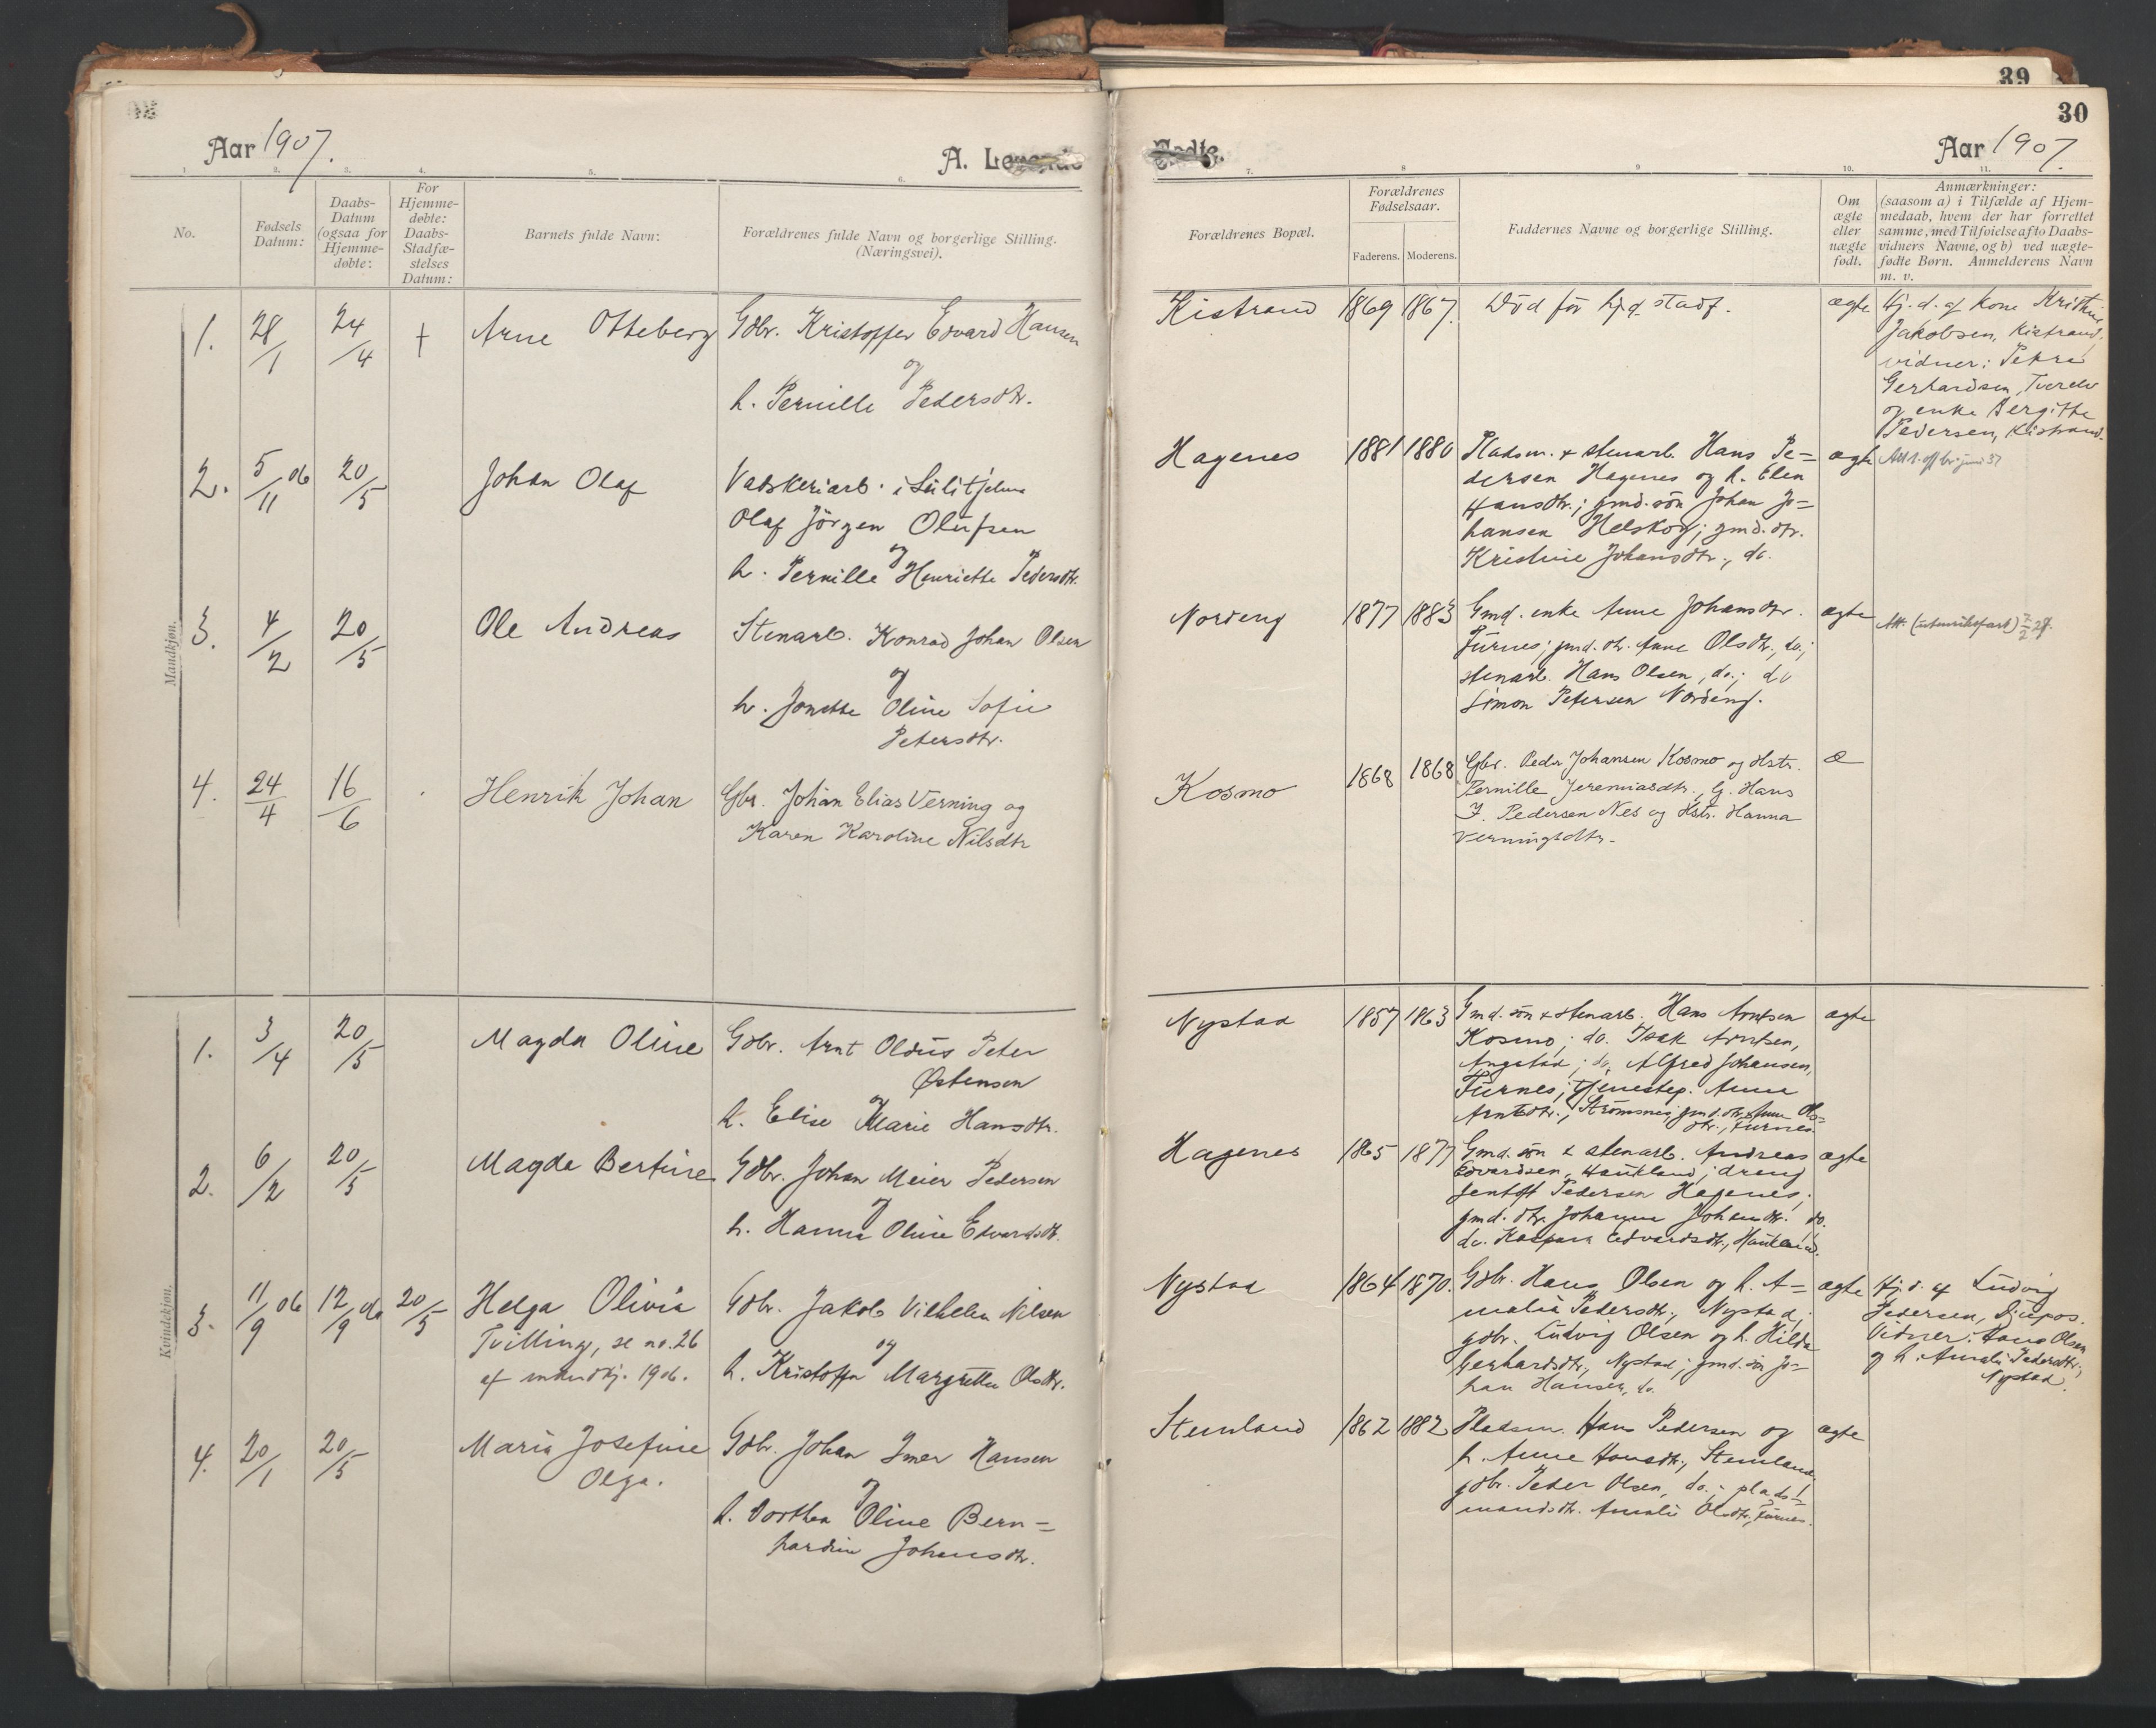 39
30
Aar 1907.
A. Levende
Fødte.
Aar 1907.
1. 2. 3. 4. 5. 6. 7. 8 9 10. 11.
No.
Fødsels Datum:
Daabs-Datum (ogsaa for Hjemme-døbte:
For Hjemme-døbte: Daabs-Stadfæ-stelses Datum:
Barnets fulde Navn:
Forældrenes fulde Navn og borgerlige Stilling.
(Næringsvei).
Forældrenes Bopæl.
Forældrenes Fødselsaar.
Faderens. Moderens.
Faddernes Navne og borgerlige Stilling.
Om ægte eller uægte født.
Anmærkninger:
(saasom a) i Tilfælde af Hjem-
medaab, hvem der har forrettet
samme, med Tilføielse af to Daabs-
vidners Navne, og b) ved uægte-
fødte Børn. Anmelderens Navn
m. v.
Mandkjøn.
1. 28/1 24/4 † Arne Otteberg
Gdbr. Kristoffer Edvard Hansen
og
h. Pernille Pedersdtr.
Kistrand 1869 1867. Død før hjd stadf. ægte
Hj. d. af kone Kristine
Jakobsen, Kistrand,
vidner: Petra
Gerhardsen, Tverelv
og enke Bergitte
Pedersen, Kistrand.
2. 5/11 06 20/5 Johan Olaf
Vaskeriarb. i Sulitjelma
Olaf Jörgen Olufsen
og
h. Pernille Henriette Pedersdtr.
Hagenes 1881 1880
Pladsm. & stenarb. Hans Pe-
dersen Hagenes og h. Elen
Hansdtr.; gmd. sön Johan Jo-
hansen Helskog; gmd. dtr.
Kristine Johansdtr., do.
ægte
3. 4/2 20/5 Ole Andreas
Stenarb. Konrad Johan Olsen
og
h. Jonette Oline Sofie
Petersdtr.
Nordeng 1877 1883
Gmd. enke Anne Johansdtr.
Furnes; gmd. dtr. Anne Olsdtr., do.;
stenarb. Hans Olsen, do.; do
Simon Petersen Nordeng.
ægte
4. 24/4 16/6 Henrik Johan
Gbr. Johan Elias Verning og
Karen Karoline Nilsdtr
Kosmo 1868 1868
Gbr. Peder Johansen Kosmo og Hstr.
Pernille Jeremiasdtr., G. Hans
J. Pedersen Nes og Hstr. Hanna
Verningsdtr.
Æ
Kvindekjøn.
1. 3/4 20/5 Magda Oline
Gdbr. Arnt Oldus Peter
Østensen
og
h. Elise Marie Hansdtr.
Nystad 1857 1863
Gmd. sön & stenarb. Hans Arntsen
Kosmo; do. Isak Arntsen,
Angstad; do. Alfred Johansen,
Furnes; tjenestep. Anne
Arntsdtr., Strømsnes; gmd. dtr. Anne Ols-
dtr., Furnes.
ægte
2. 6/2 20/5 Magda Bertine
Gdbr. Johan Meier Pedersen
og
h. Hanna Oline Edvardsdtr.
Hagenes 1865 1877
Gmd. sön & stenarb. Andreas
Edvardsen, Haukland; dreng
Jentoft Pedersen Hagenes;
gmd. dtr. Johanna Johansdtr. do.
do. Kaspara Edvardsdtr., Haukland.
ægte
3. 11/9 06 12/9 06 20/5 Helga Olivia
Tvilling, se no. 26
af mandkj. 1906.
Gdbr. Jakob Vilhelm Nilsen
og
h. Kristoffa Margrethe Olsdtr.
Nystad 1864 1870.
Gdbr. Hans Olsen og h. A-
malia Pedersdtr., Nystad;
gdbr. Ludvig Olsen og h. Hilda
Gerhardsdtr., Nystad; gmd. sön Jo-
han Hansen, do.
ægte
Hj. d. af Ludvig
Pedersen, Djupos.
Vidner: Hans Olsen
og h. Amalie Pedersdtr.,
Nystad.
4. 20/1 20/5 Maria Josefine
Olga.
Gdbr. Johan Imer Hansen
og
h. Dorthea Oline Bern-
hardine Johansdtr.
Stemland 1862 1882
Pladsm. Hans Pedersen og
h. Anne Hansdtr., Stemland.
gdbr. Peder Olsen, do.; plads-
mandsdtr. Amalie Olsdtr., Furnes.
ægte